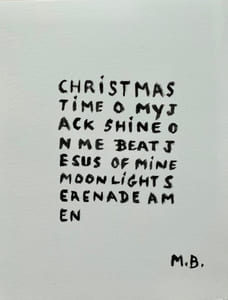 CHRISTMAS
TiME O MY J
ACK SHINE O
N ME BEAT J
ESUS OF MINE
MOONLIGHT S
ERENADE AM
EN
M.B.